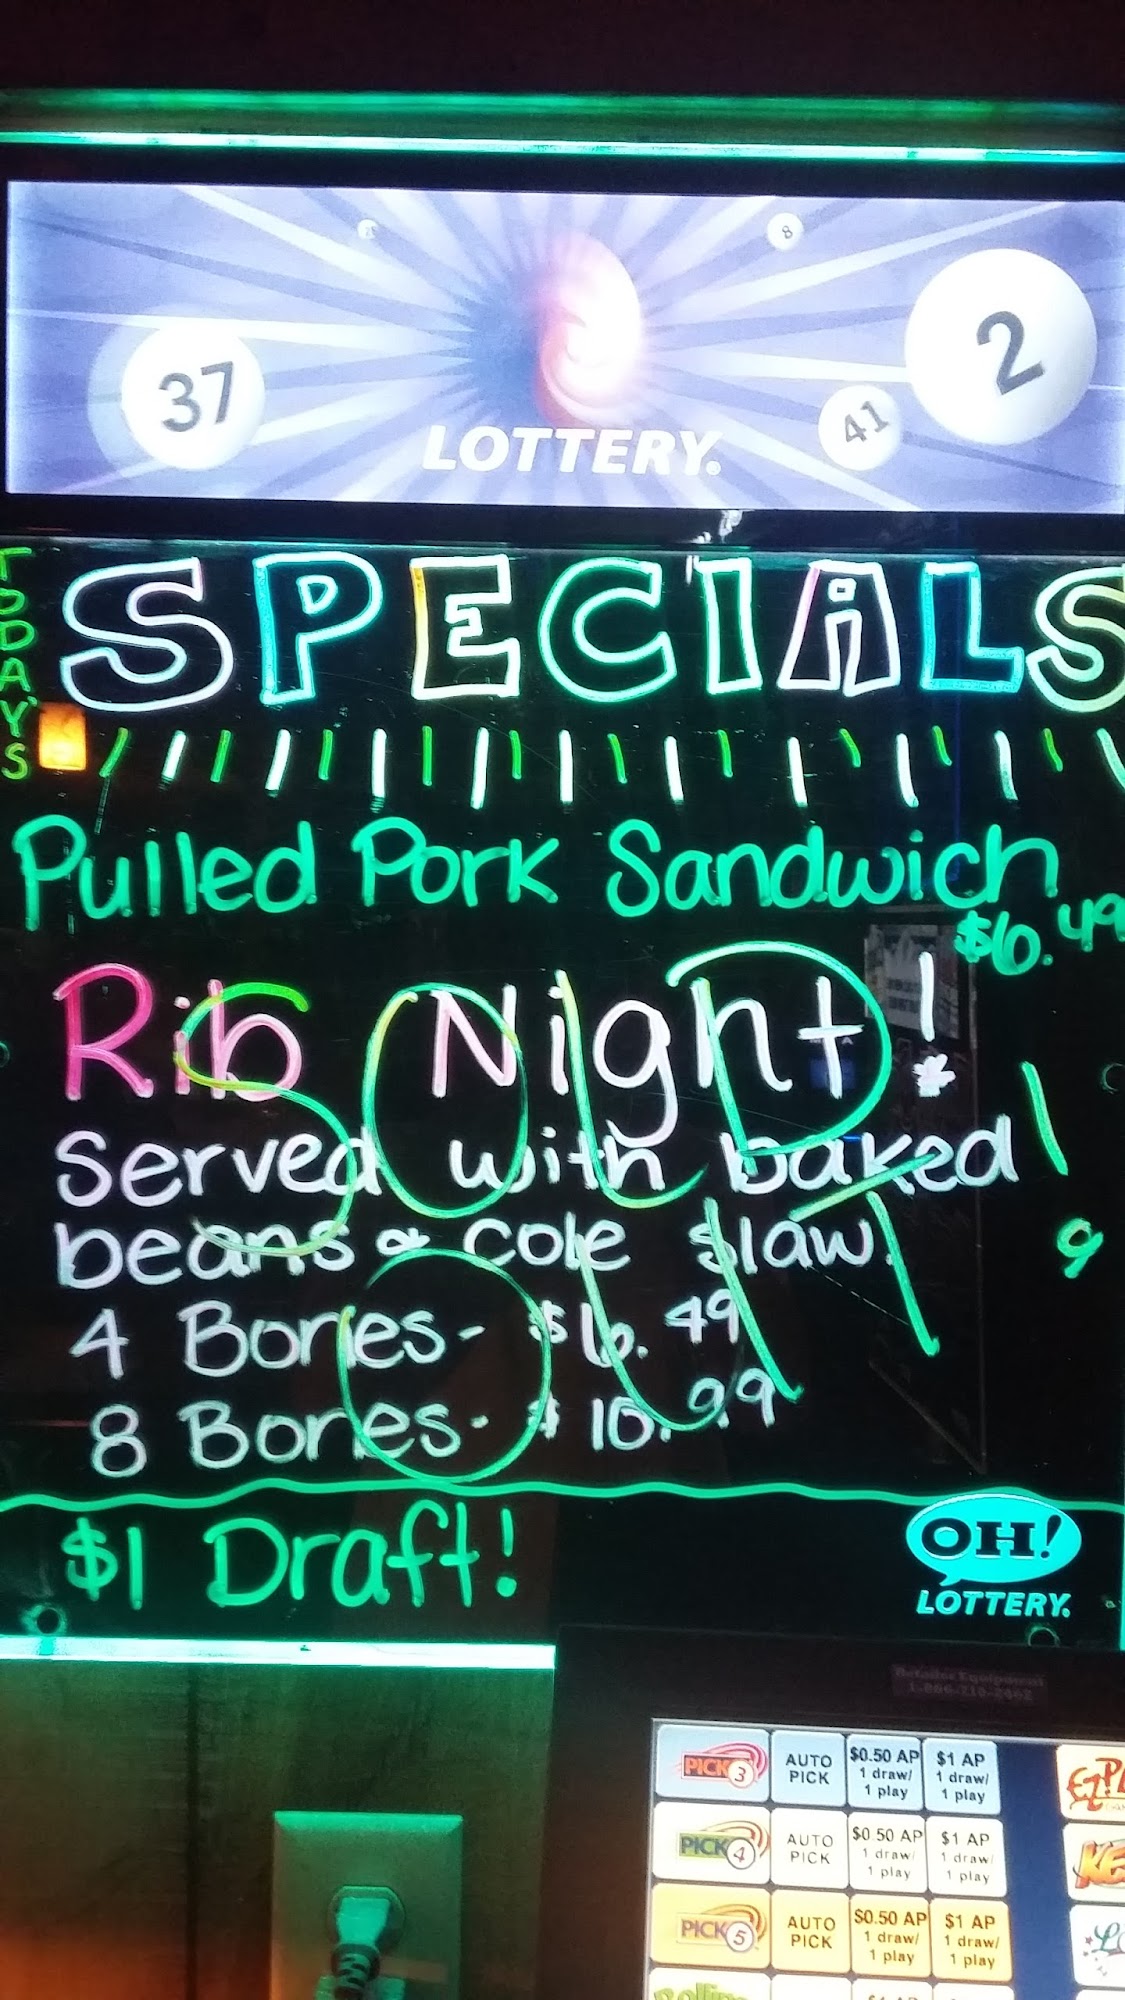 8
37
2
41
LOTTERY.
TODAY'S
SPECIALS
Pulled Pork Sandwich
$6.49
Rib Night!
*
served with baked
beans & cole slaw.
4 Bones- $6.49
8 Bones- $10.99
SOLD
OUT
!
$1 Draft!
OH!
LOTTERY.
Retailer Equipment
PICK 3 AUTO PICK $0.50 AP 1 draw/ 1 play $1 AP 1 draw/ 1 play
PICK 4 AUTO PICK $0.50 AP 1 draw/ 1 play $1 AP 1 draw/ 1 play
PICK 5 AUTO PICK $0.50 AP 1 draw/ 1 play $1 AP 1 draw/ 1 play